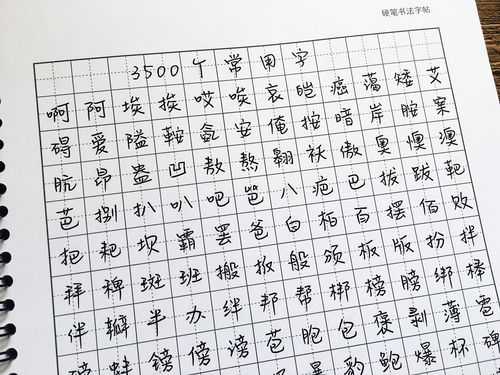 硬笔书法字帖
3500个常用字
啊阿埃挨哎唉哀皑癌蔼矮艾
碍爱隘鞍氨安俺按暗岸胺案
肮昂盎凹敖熬翱袄傲奥懊澳
芭捌扒叭吧笆八疤巴拔跋靶
把耙坝霸罢爸白柏百摆佰败
拜稗斑班搬扳般颁板版扮拌
伴瓣半办绊邦帮梆榜膀绑棒
磅蚌镑傍谤苞胞包褒剥薄雹
豹鲍爆杯碑